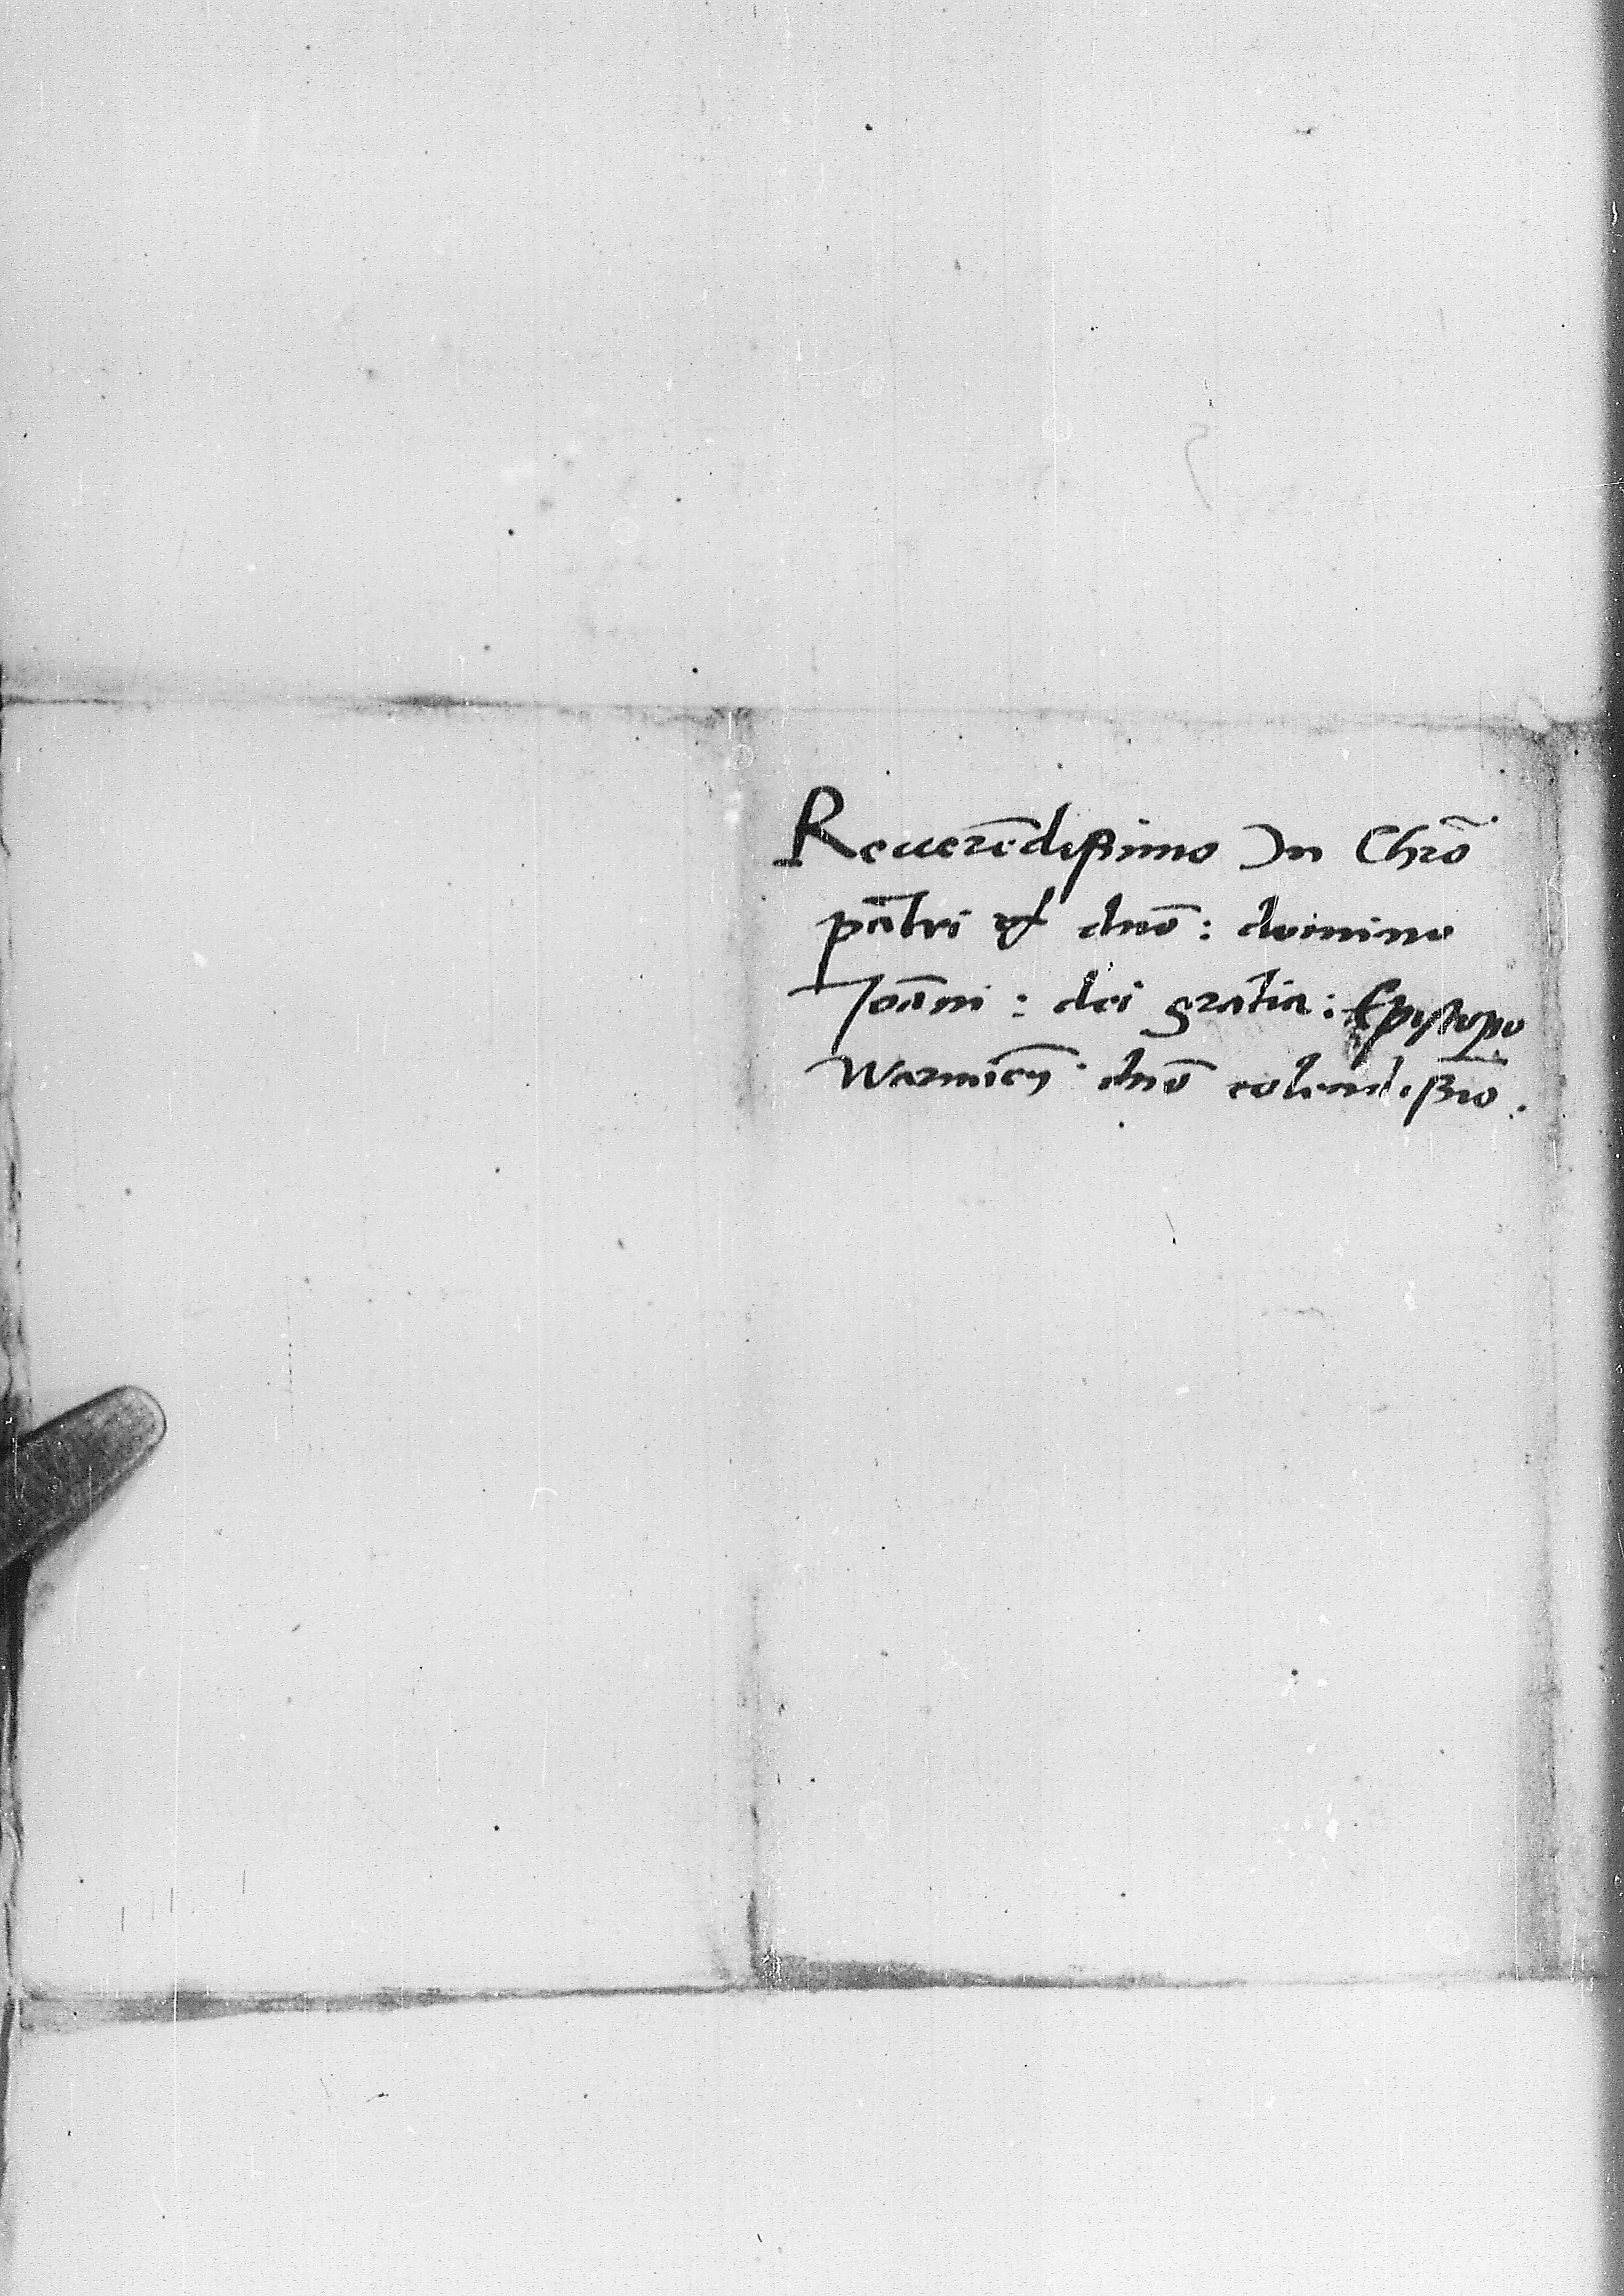 Reuerēdissimo In Chrō
pātri et dnō : domino
Joāni : dei gratia : Epyscopo
Warmieñ dnō colendissīo .